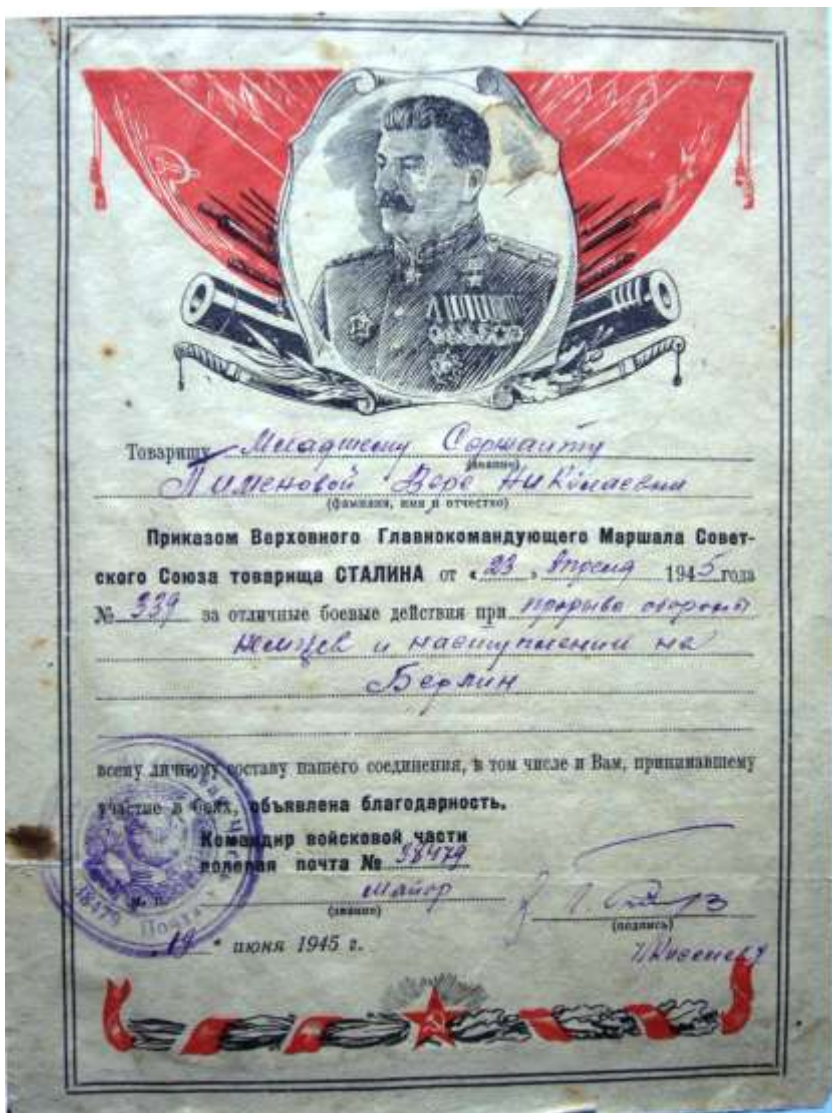 Товарищу Младшему Сержанту
(звание)
Пименовой Вере Николаевны
(фамилия, имя и отчество)
Приказом Верховного Главнокомандующего Маршала Совет-
ского Союза товарища СТАЛИНА от «23» Апреля 1945 года
№ 339 за отличные боевые действия при прорыве обороны
немцев и наступлении на
Берлин
всему личному составу нашего соединения, в том числе и Вам, принимавшему
участие в боях, объявлена благодарность.
Командир войсковой части
полевая почта № 38479
М. П. Майор
(звание)
(подпись)
38479
"19" июня 1945 г.